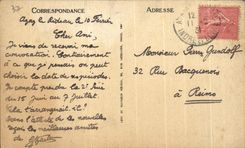 CORRESPONDANCE
ADRESSE
Azay le Rideau le 10 Février
Cher Ami,
Je viens de recevoir ma
convocation. Contrairement
à ce que je pensais on peut
choisir la date des périodes.
Je compte prendre la 2e série
du 15 Juin au 7 Juillet.
Dans l'attente de tes nouvelles
reçois les meilleures amitiés
de
Monsieur Pierre
32 Rue
à Reims
12